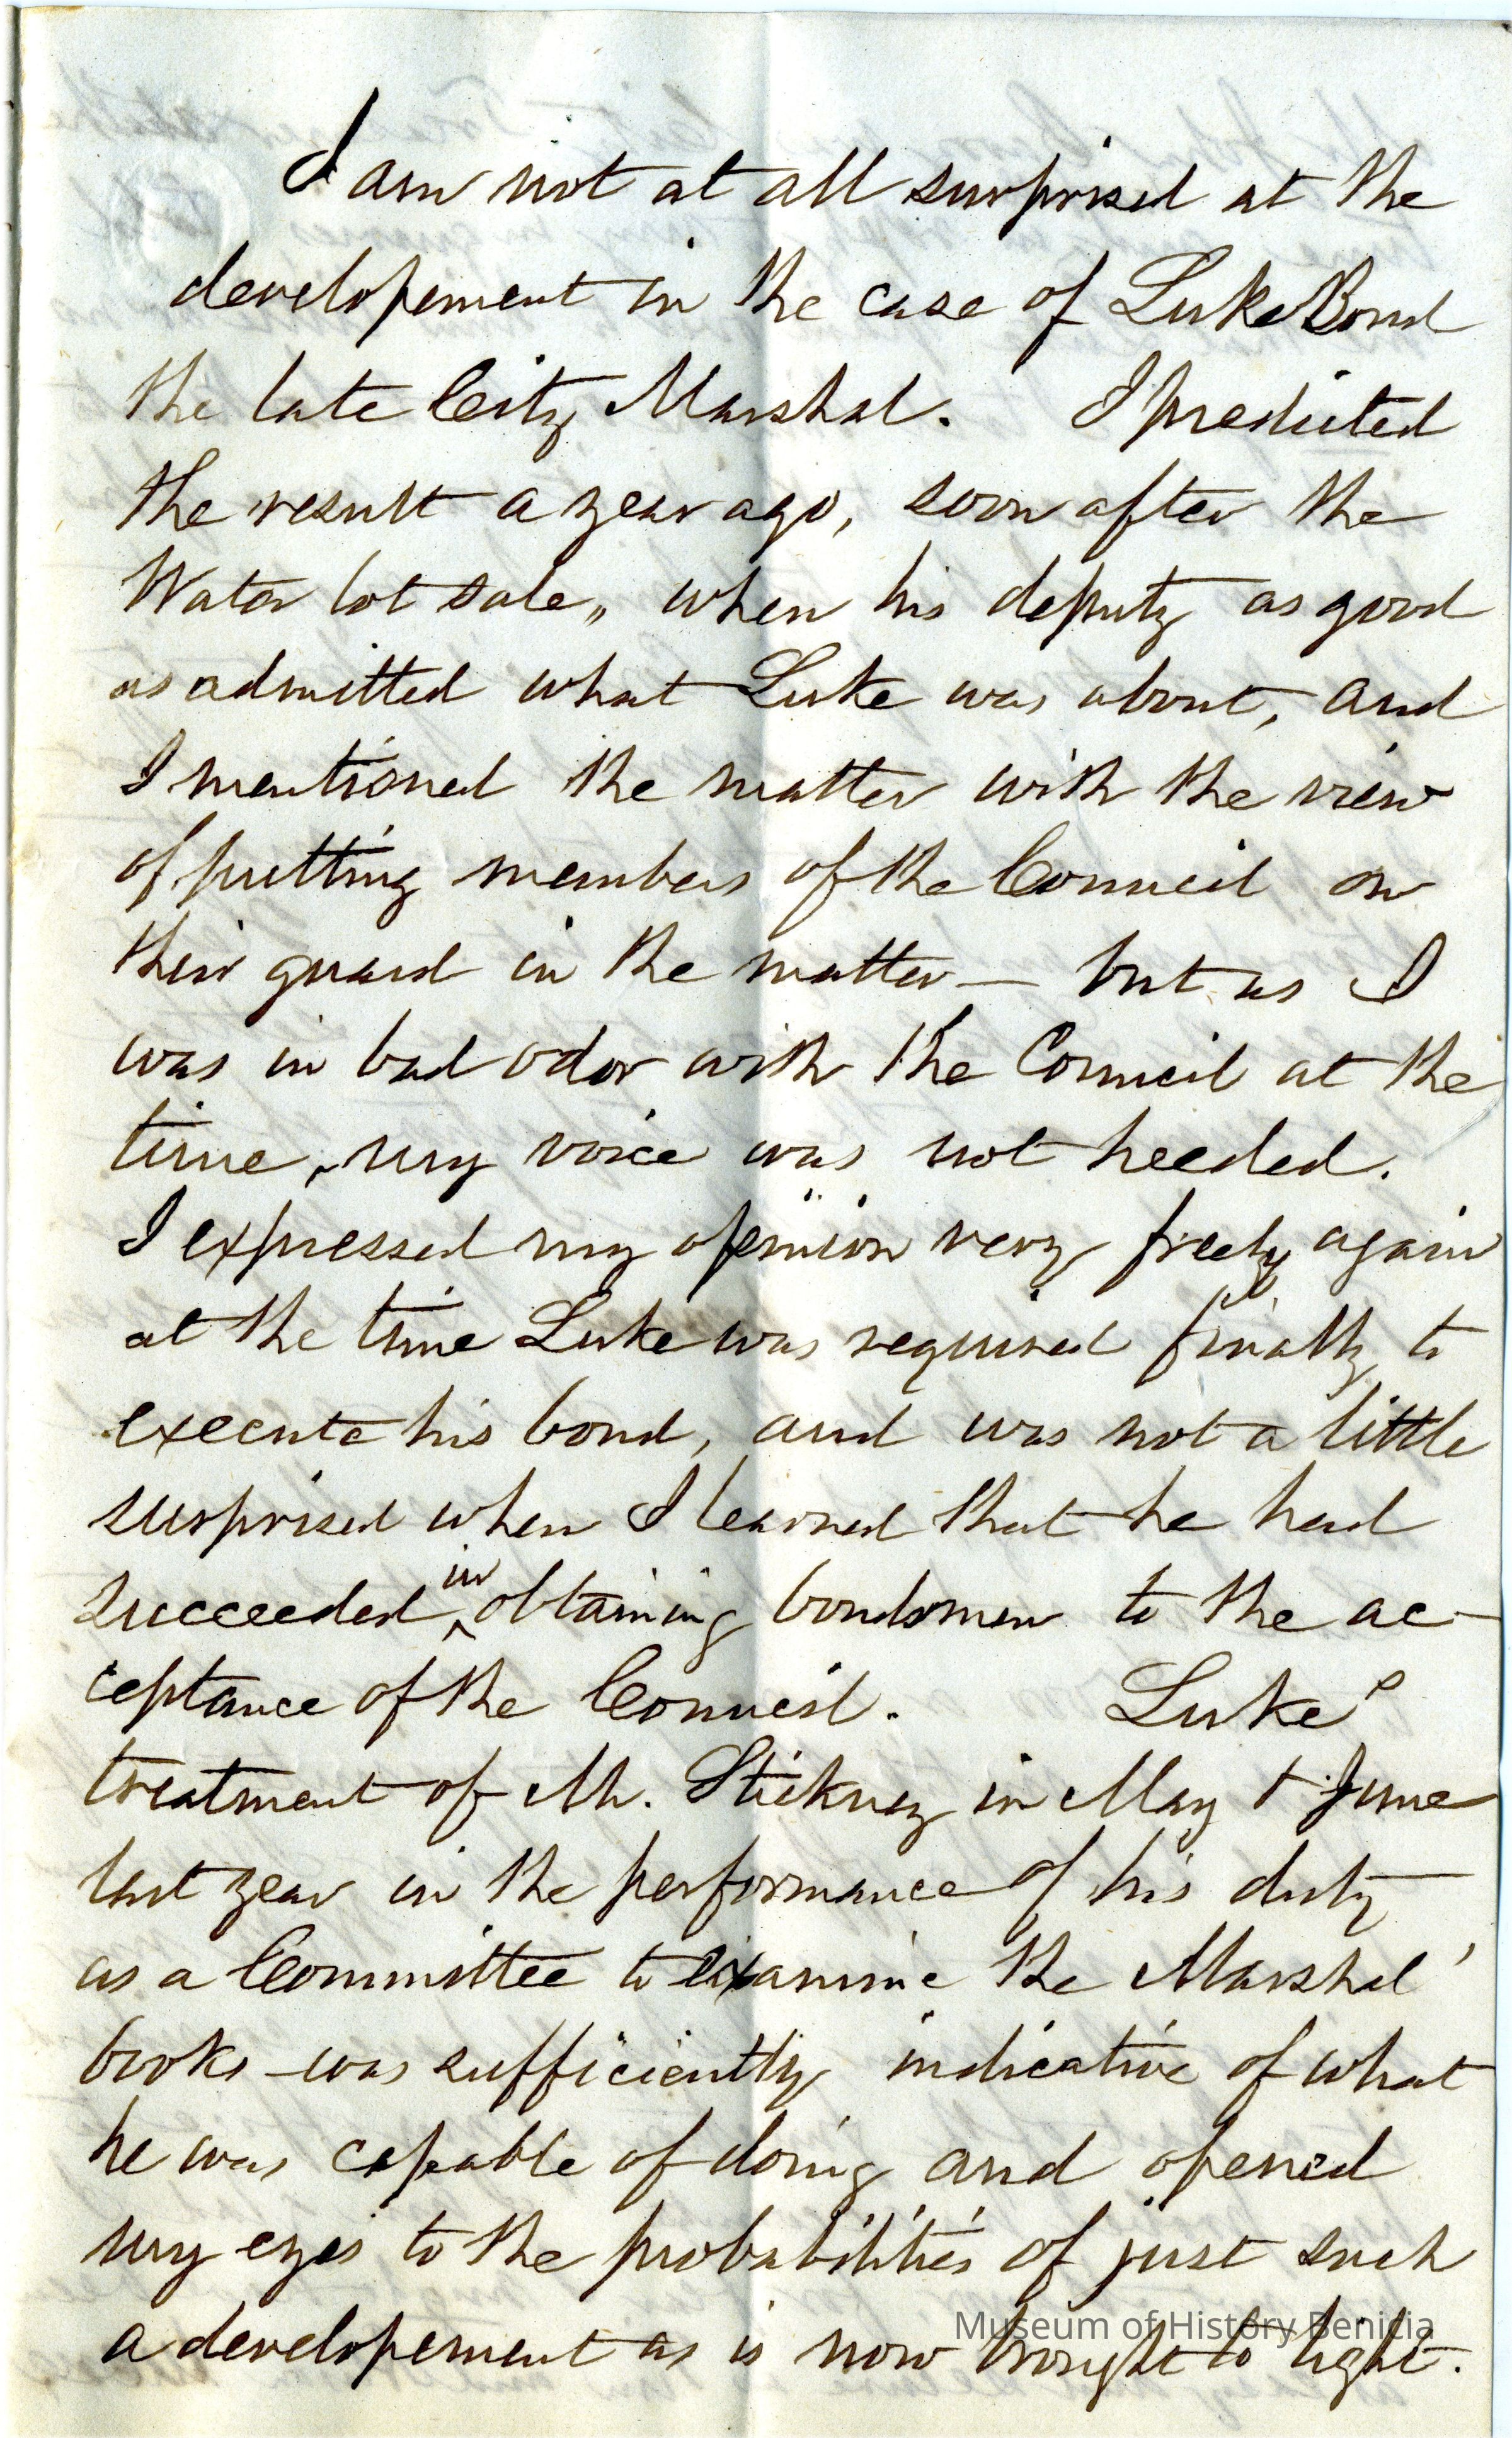 I am not at all surprised at the
developement in the case of Luke Bond
the late City Marshal. I predicted
the result a year ago, soon after the
Water lot sale,, when his deputy as good
as admitted what Luke was about, and
I mentioned the matter with the view
of putting members of the Council on
their guard in the matter — but as I
was in bad odor with the Council at the
time, my voice was not heeded.
I expressed my opinion very freely again
at the time Luke was required finally to
execute his bond, and was not a little
surprised when I learned that he had
succeeded in obtaining bondsmen to the ac-
ceptance of the Council. Luke's
treatment of Mr. Stickney in May & June
last year in the performance of his duty
as a Committee to examine the Marshal'
books was sufficiently indicative of what
he was capable of doing and opened
my eyes to the probabilities of just such
a developement as is now brought to light.
Museum of History Benicia